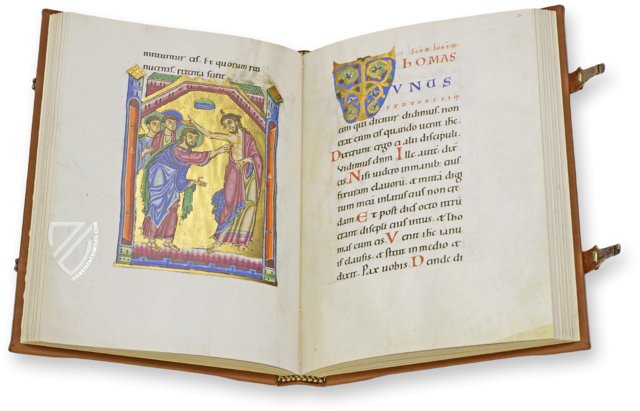 mittuntur eis. Et quorum reti
nueritis, retenta sunt.
HOMAS
VNVS
EXDVODECIM
cim qui dicitur didimus. non
erat cum eis quando uenit ihc.
Dixerunt ergo ei alii discipuli.
Vidimus dnm. Ille aute dix
eis. Nisi uidero in manib; eius
fixuram clauoru. & mitta digi
tum meu in latus eius non cre
dam. Et post dies octo iteru
erant discipli eius intus. & tho
mas cum eis. Venit ihc ianu
is clausis. & stetit in medio &
dixit. Pax uobis. Deinde di
ZIEREISFACSIMILES.COM